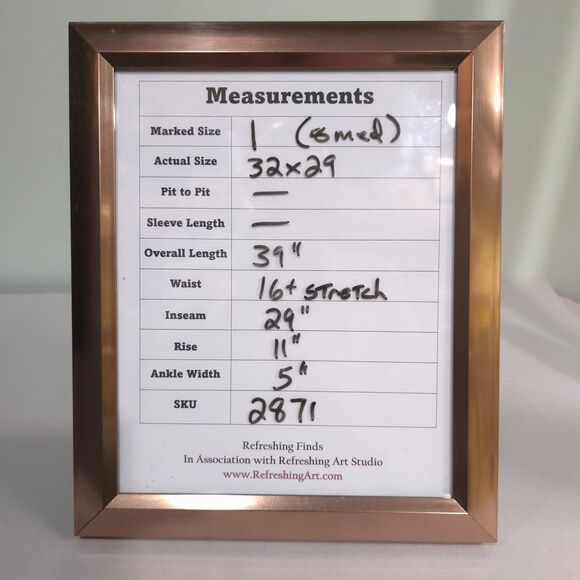 Measurements
Marked Size 1 (smed)
Actual Size 32x29
Pit to Pit —
Sleeve Length —
Overall Length 39"
Waist 16+ STretch
Inseam 29"
Rise 11"
Ankle Width 5"
SKU 2871
Refreshing Finds
In Association with Refreshing Art Studio
www.RefreshingArt.com